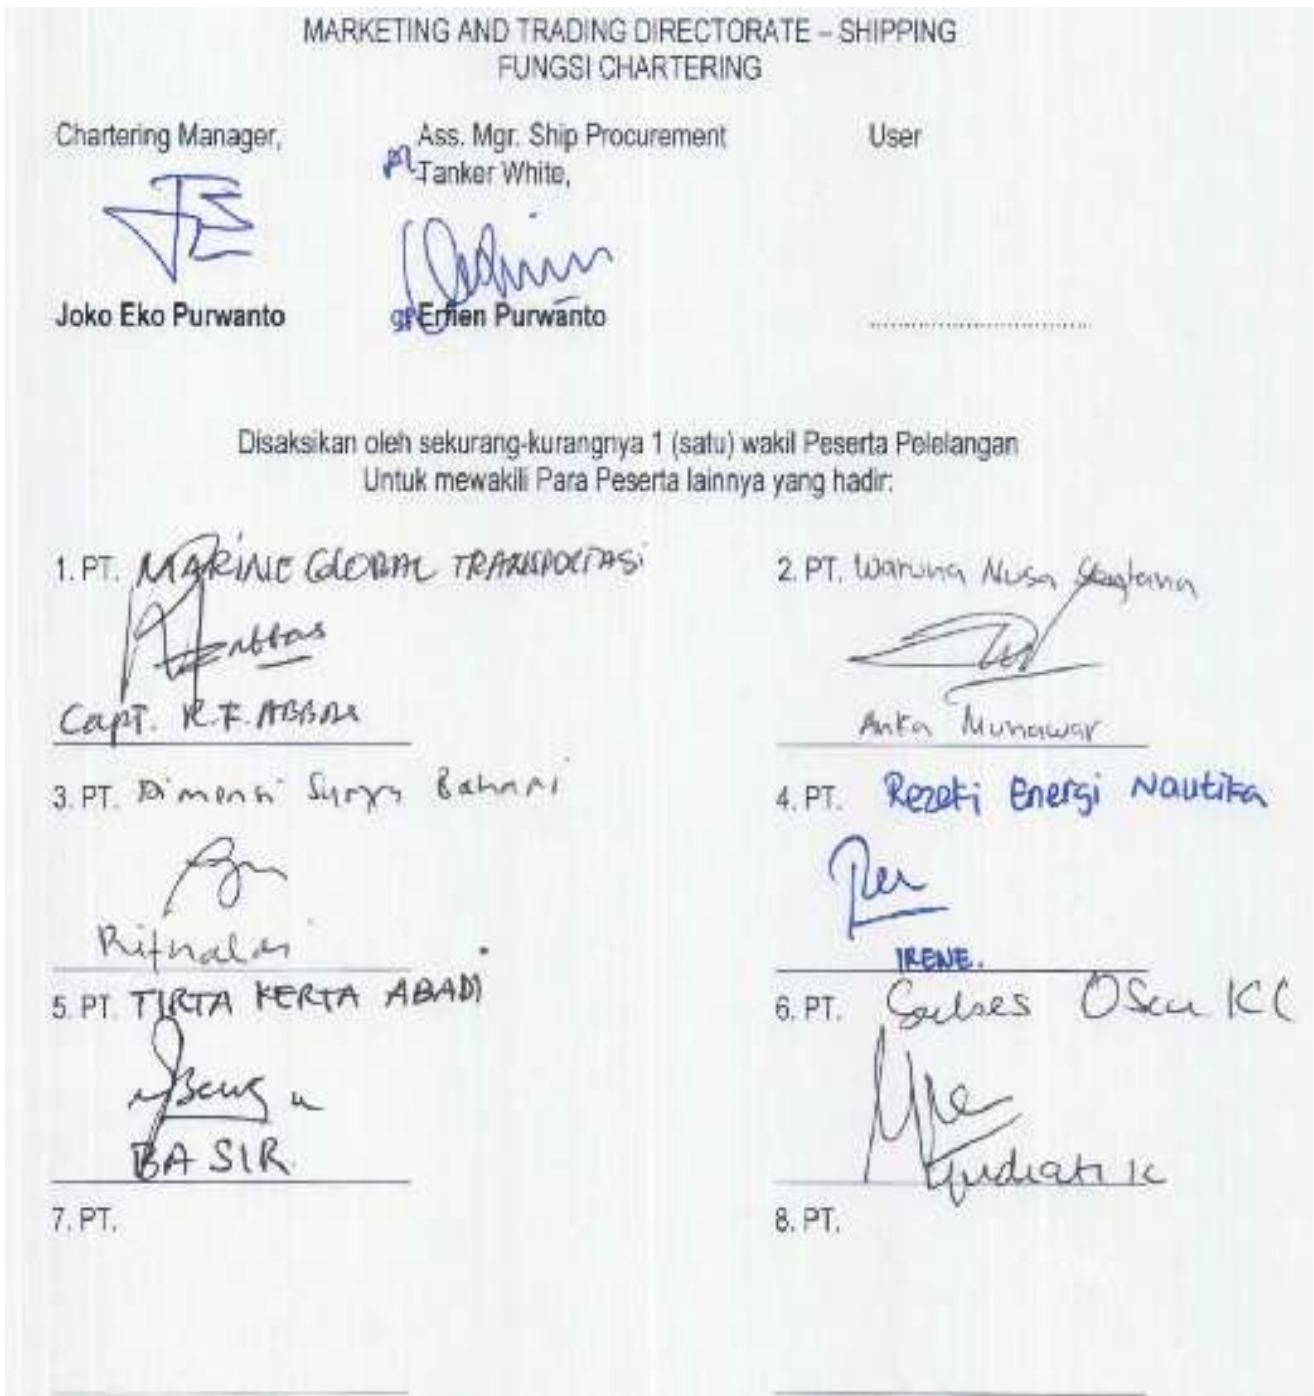 MARKETING AND TRADING DIRECTORATE – SHIPPING
FUNGSI CHARTERING
Chartering Manager,
Ass. Mgr. Ship Procurement
Tanker White,
User
Joko Eko Purwanto
gp Erfien Purwanto
..............................
Disaksikan oleh sekurang-kurangnya 1 (satu) wakil Peserta Pelelangan
Untuk mewakili Para Peserta lainnya yang hadir:
1. PT. MARINE GLOBAL TRANSPORTASI
Capt. R.F. ABBAS
2. PT. Waruna Nusa Sentana
Anka Munawar
3. PT. Dimensi Surya Bahari
Rifnaldi
4. PT. Rezeki Energi Nautika
IRENE.
5. PT. TIRTA KERTA ABADI
BASIR
6. PT. Sukses
7. PT.
8. PT.